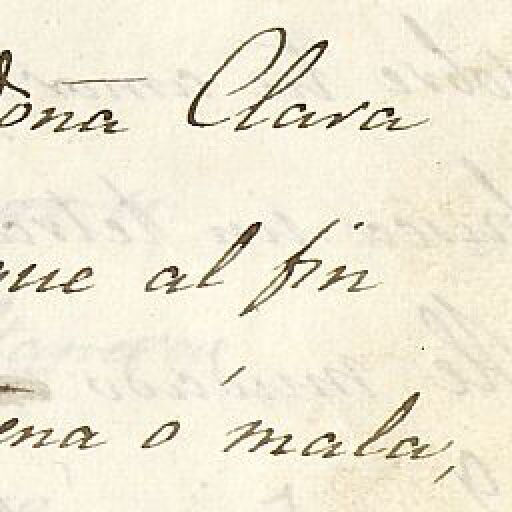 doña Clara
que al fin
ena ó mala,